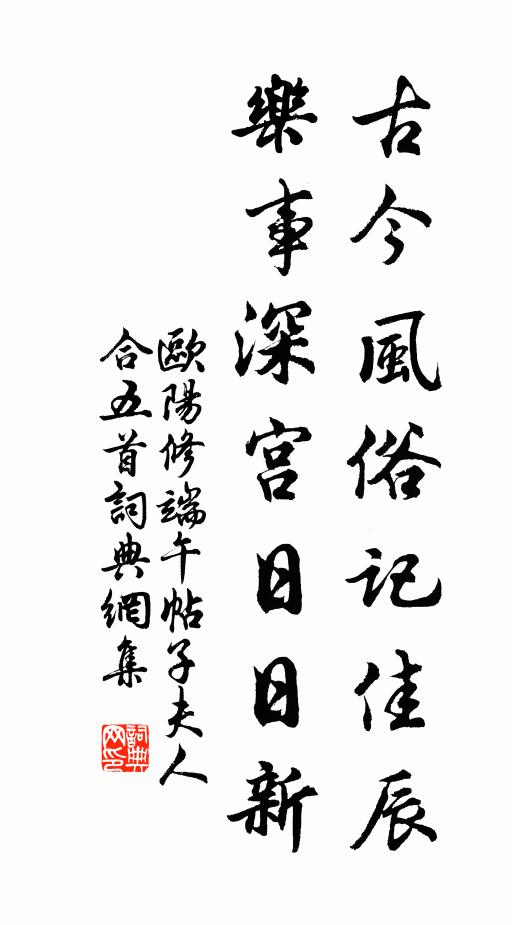 古今風俗記佳辰
樂事深宮日日新
歐陽修端午帖子夫人
合五首詞典網集
詞典
网印